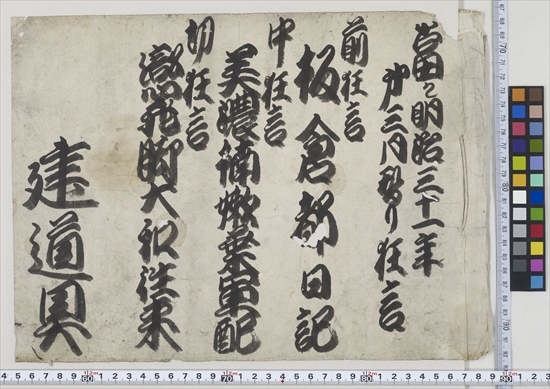 當ル明治三十一年
第三月替り狂言
前狂言
板倉都日記
中狂言
美濃浦嫩葉軍配
切狂言
戀飛脚大和往来
建道具